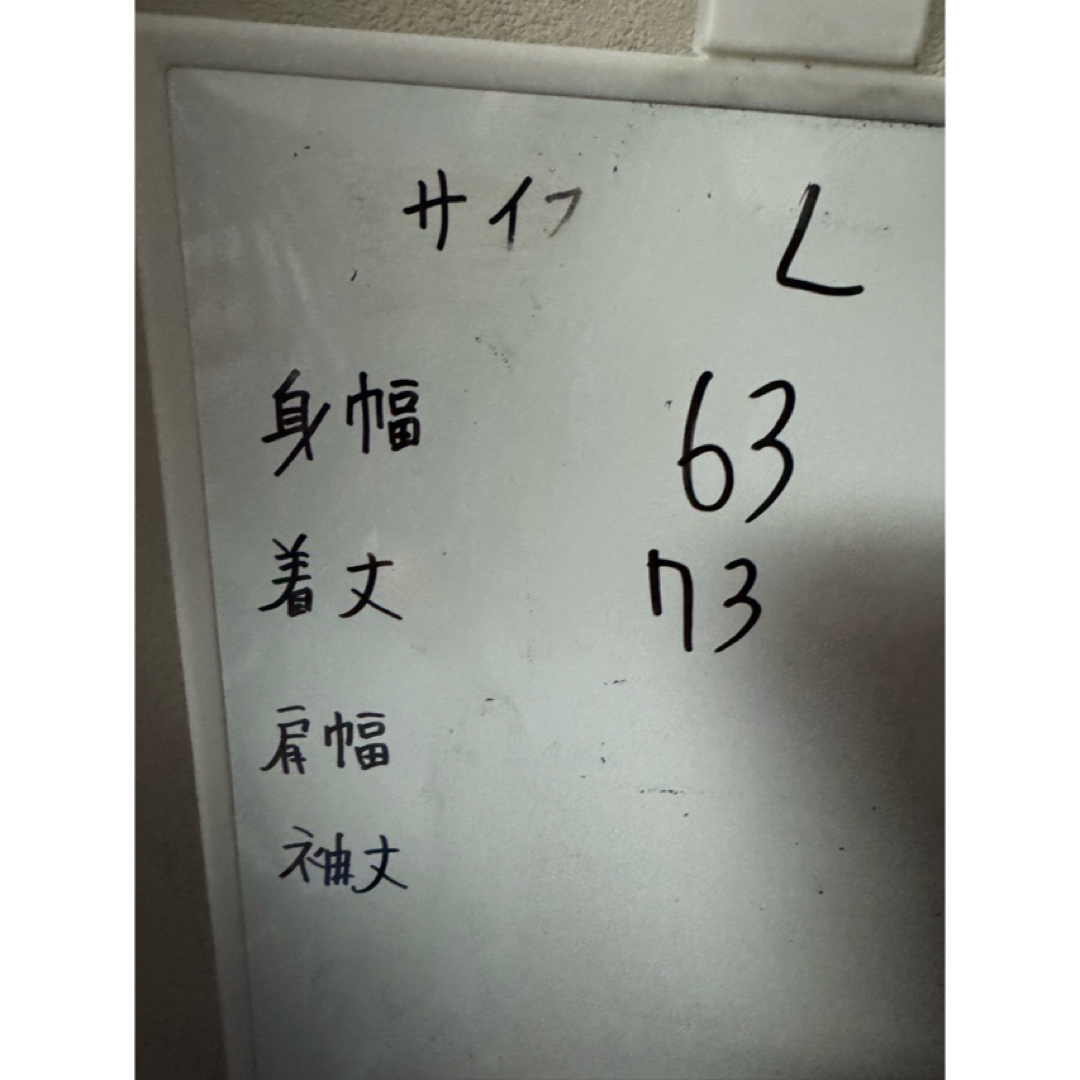 サイフ L
身幅 63
着丈 73
肩幅
袖丈